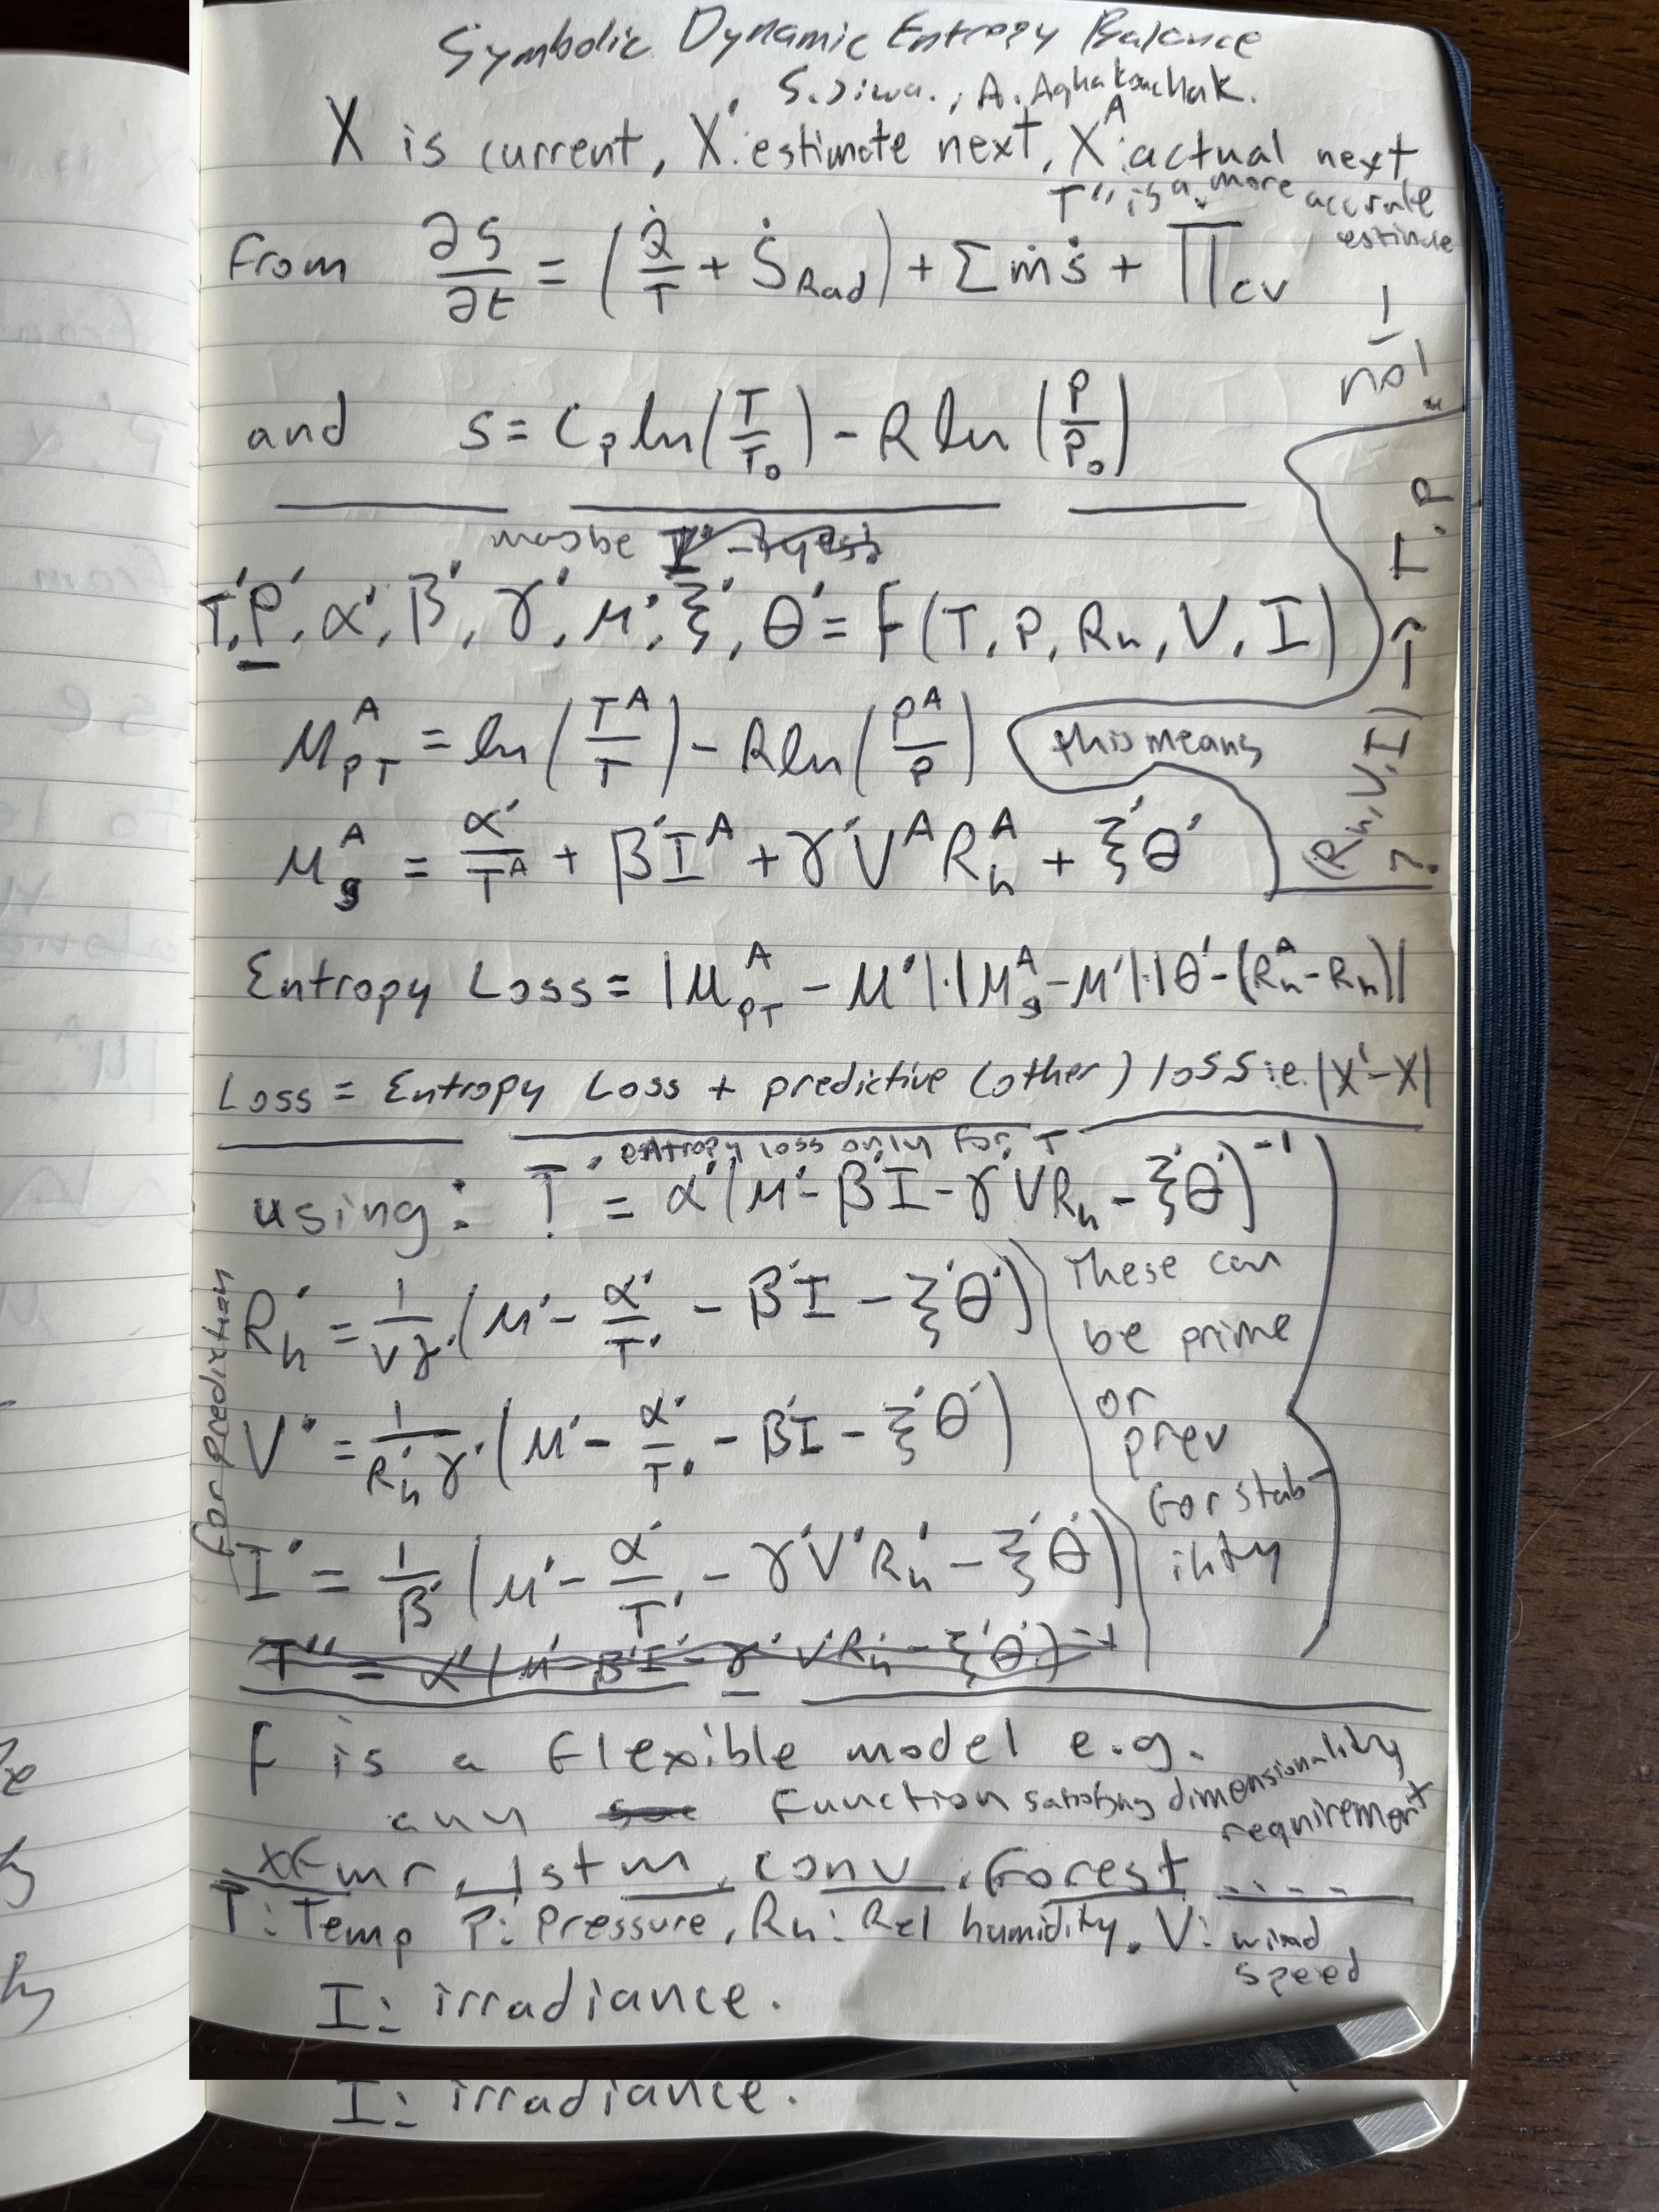 Symbolic Dynamic Entropy Balance
S. Siwa., A. Aghakouchak.
X is current, X': estimate next, X^A: actual next
T'' is a more accurate estimate
From ∂S/∂t = (Q̇/T + Ṡ_Rad) + Σṁṡ + Π_cv
and s = C_p ln(T/T_0) - R ln(P/P_0)
maybe
T', P', α', β', γ', μ', ξ', θ' = F(T, P, R_h, V, I)
μ_PT^A = ln(T^A/T) - R ln(P^A/P)
this means
(R_h, V, I) → T, P
?
no!
μ_s^A = α'/T^A + β'I^A + γ'V^A R_h^A + ξ'θ'
Entropy Loss = |μ_PT^A - μ'|·|μ_s^A - μ'|·|θ' - (R_h^A - R_h)|
Loss = Entropy Loss + predictive (other) loss i.e. |X' - X|
entropy loss only for T
using: T' = α'(μ' - β'I - γ'VR_h - ξ'θ')^-1
for prediction
R_h' = 1/Vγ' (μ' - α'/T' - β'I - ξ'θ')
V' = 1/R_h'γ' (μ' - α'/T' - β'I - ξ'θ')
I' = 1/β' (μ' - α'/T' - γ'V'R_h' - ξ'θ')
These can
be prime
or
prev
for stab
ility
T'' = α'(μ' - β'I' - γ'V'R_h' - ξ'θ')^-1
F is a flexible model e.g.
any function satisfying dimensionality requirement
xfmr, lstm, conv, forest ....
T: Temp P: Pressure, R_h: Rel humidity, V: wind speed
I: irradiance.
I: irradiance.